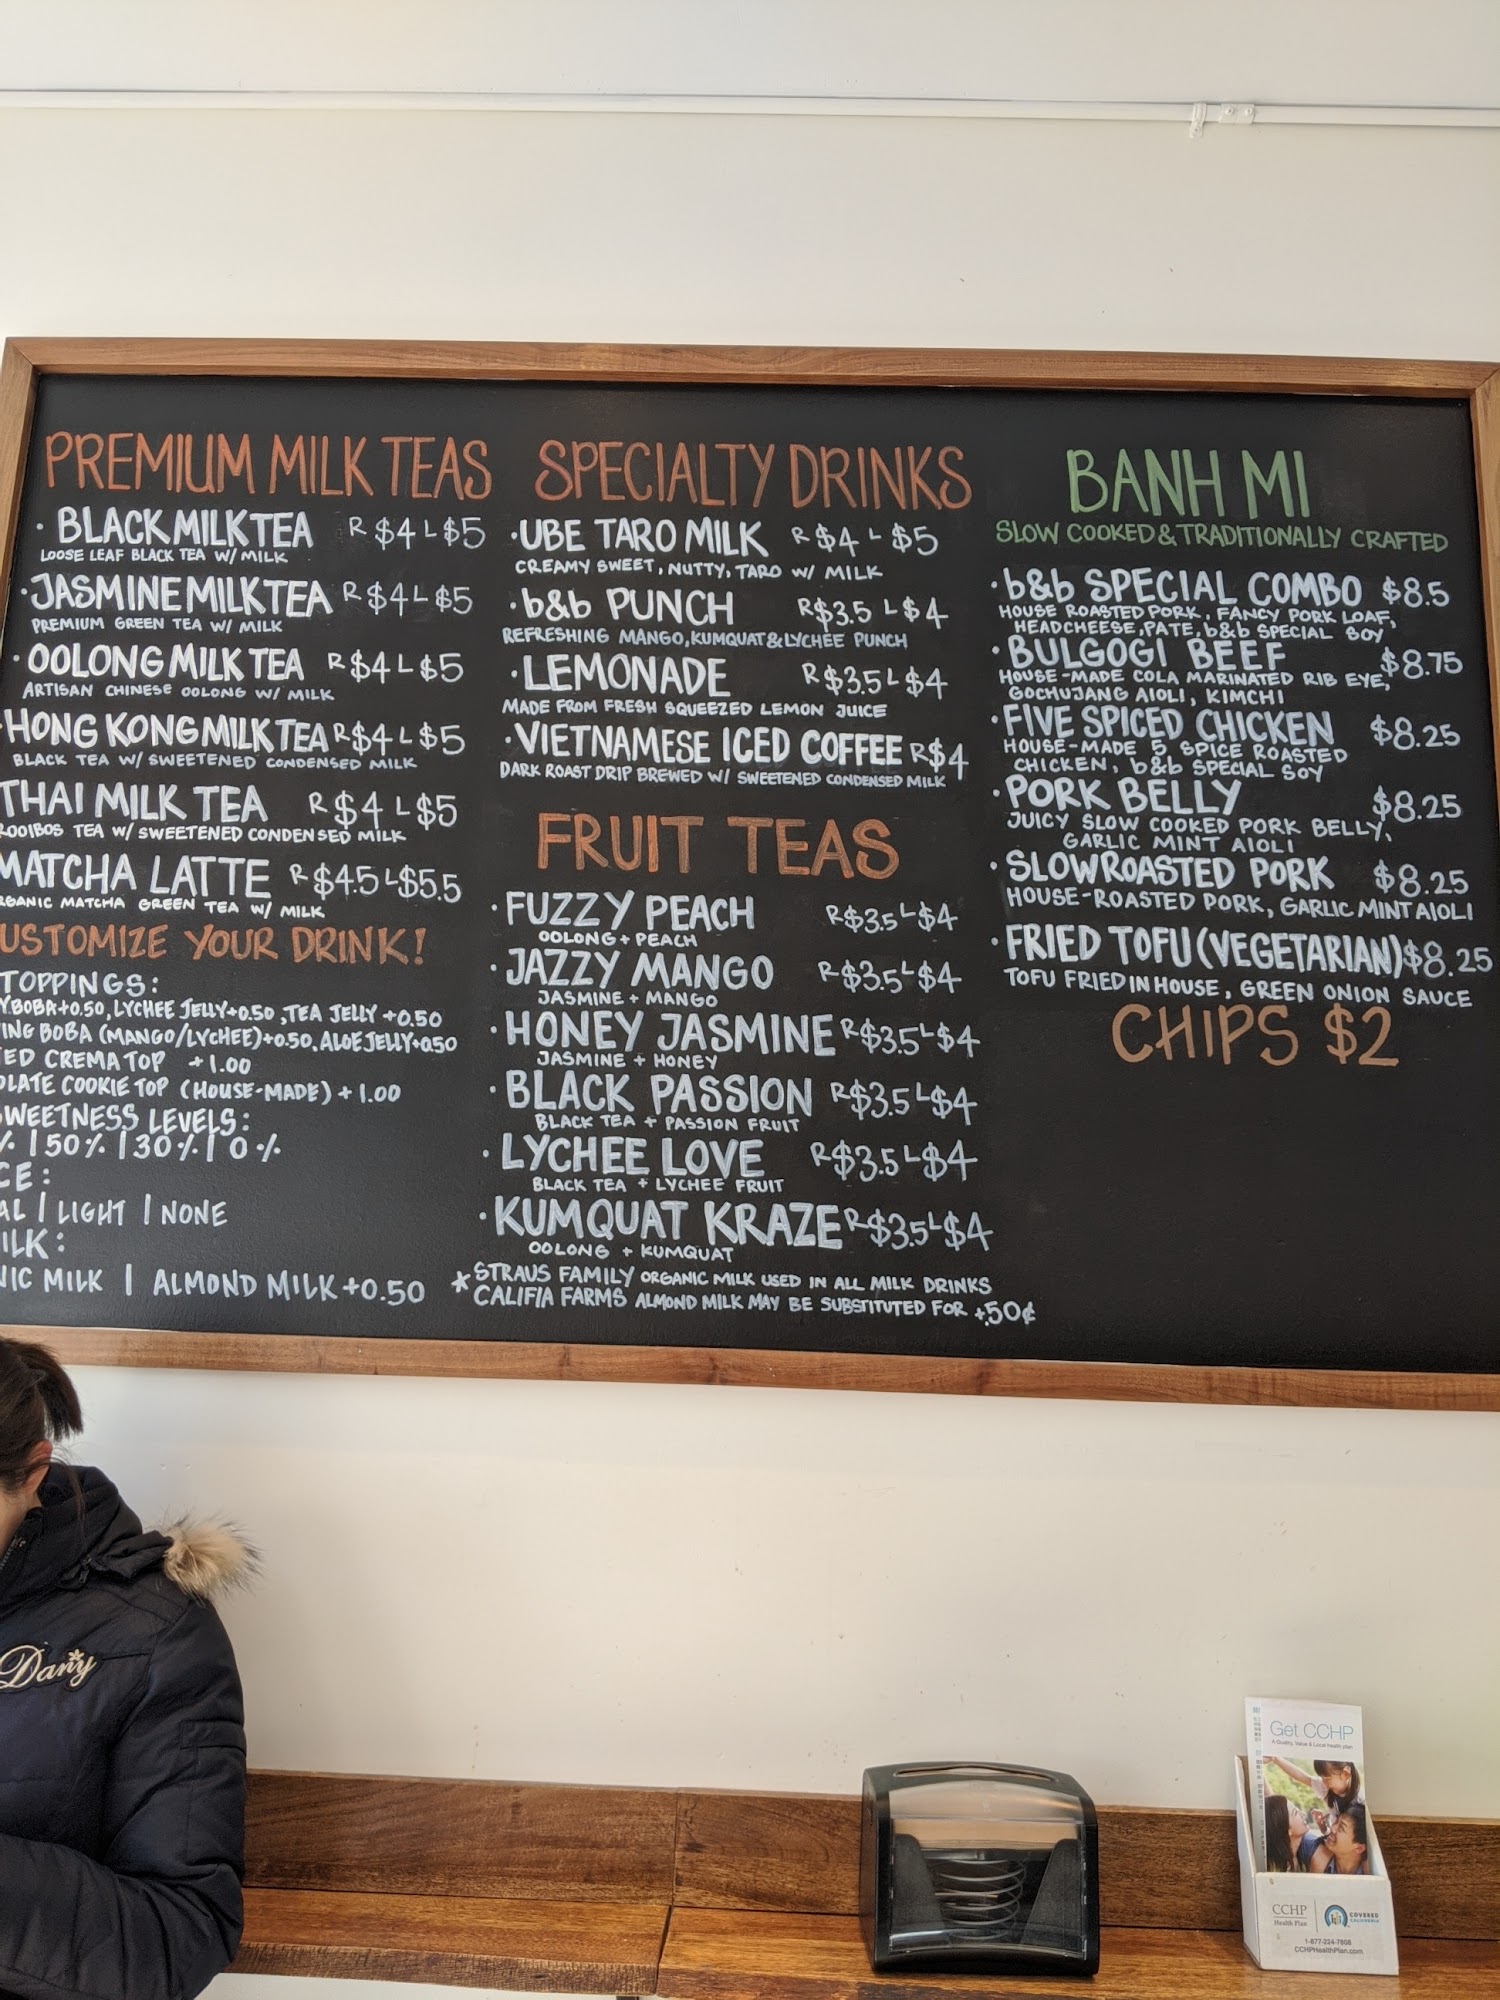 PREMIUM MILK TEAS
· BLACK MILK TEA R $4 L $5
LOOSE LEAF BLACK TEA W/ MILK
· JASMINE MILK TEA R $4 L $5
PREMIUM GREEN TEA W/ MILK
· OOLONG MILK TEA R $4 L $5
ARTISAN CHINESE OOLONG W/ MILK
HONG KONG MILK TEA R $4 L $5
BLACK TEA W/ SWEETENED CONDENSED MILK
THAI MILK TEA R $4 L $5
ROOIBOS TEA W/ SWEETENED CONDENSED MILK
MATCHA LATTE R $4.5 L $5.5
RGANIC MATCHA GREEN TEA W/ MILK
USTOMIZE YOUR DRINK!
TOPPINGS:
Y BOBA +0.50, LYCHEE JELLY +0.50, TEA JELLY +0.50
ING BOBA (MANGO/LYCHEE) +0.50, ALOE JELLY +0.50
TED CREMA TOP +1.00
OLATE COOKIE TOP (HOUSE-MADE) +1.00
WEETNESS LEVELS:
% | 50% | 30% | 0%
CE:
AL | LIGHT | NONE
ILK:
NIC MILK | ALMOND MILK +0.50
SPECIALTY DRINKS
· UBE TARO MILK R $4 L $5
CREAMY SWEET, NUTTY, TARO W/ MILK
· b&b PUNCH R $3.5 L $4
REFRESHING MANGO, KUMQUAT & LYCHEE PUNCH
· LEMONADE R $3.5 L $4
MADE FROM FRESH SQUEEZED LEMON JUICE
· VIETNAMESE ICED COFFEE R $4
DARK ROAST DRIP BREWED W/ SWEETENED CONDENSED MILK
FRUIT TEAS
· FUZZY PEACH R $3.5 L $4
OOLONG + PEACH
· JAZZY MANGO R $3.5 L $4
JASMINE + MANGO
· HONEY JASMINE R $3.5 L $4
JASMINE + HONEY
· BLACK PASSION R $3.5 L $4
BLACK TEA + PASSION FRUIT
· LYCHEE LOVE R $3.5 L $4
BLACK TEA + LYCHEE FRUIT
· KUMQUAT KRAZE R $3.5 L $4
OOLONG + KUMQUAT
* STRAUS FAMILY ORGANIC MILK USED IN ALL MILK DRINKS
CALIFIA FARMS ALMOND MILK MAY BE SUBSTITUTED FOR +.50¢
BANH MI
SLOW COOKED & TRADITIONALLY CRAFTED
· b&b SPECIAL COMBO $8.5
HOUSE ROASTED PORK, FANCY PORK LOAF,
HEADCHEESE, PATE, b&b SPECIAL SOY
· BULGOGI BEEF $8.75
HOUSE-MADE COLA MARINATED RIB EYE,
GOCHUJANG AIOLI, KIMCHI
· FIVE SPICED CHICKEN $8.25
HOUSE-MADE 5 SPICE ROASTED
CHICKEN, b&b SPECIAL SOY
· PORK BELLY $8.25
JUICY SLOW COOKED PORK BELLY,
GARLIC MINT AIOLI
· SLOW ROASTED PORK $8.25
HOUSE-ROASTED PORK, GARLIC MINT AIOLI
· FRIED TOFU (VEGETARIAN) $8.25
TOFU FRIED IN HOUSE, GREEN ONION SAUCE
CHIPS $2
Dany
Get CCHP
A Quality, Value & Local health plan
CCHP
Health Plan
COVERED
CALIFORNIA
1-877-224-7808
CCHPHealthPlan.com